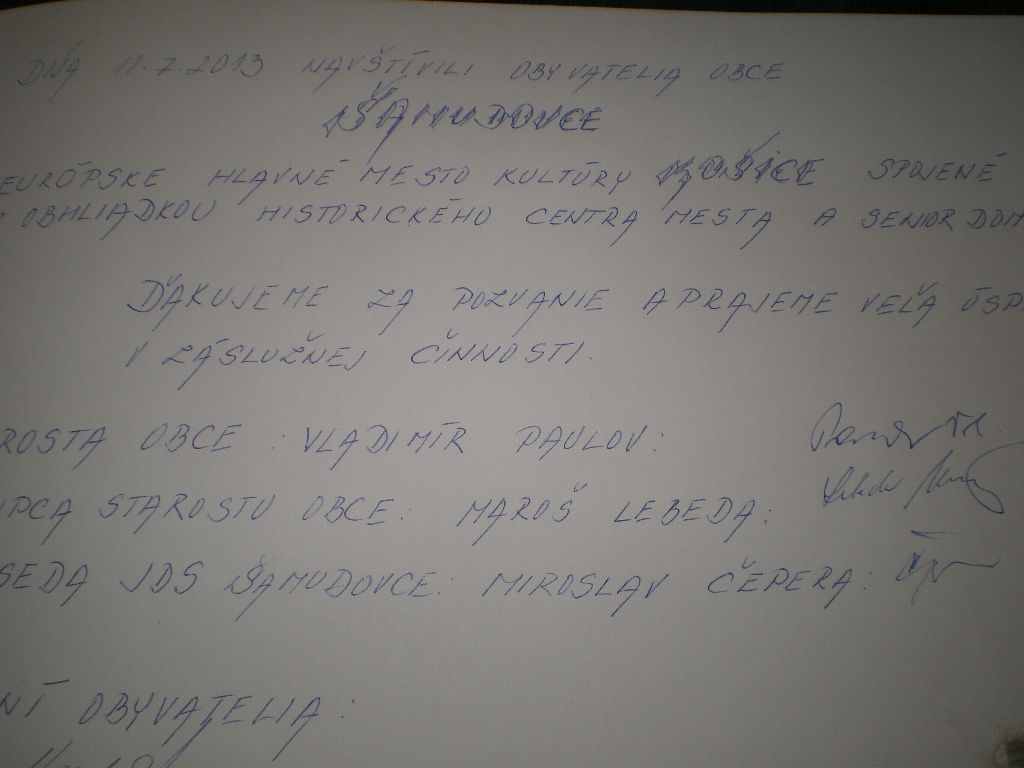 DŇA 11.7.2013 NAVŠTÍVILI OBYVATELIA OBCE
ŠAMUDOVCE
EURÓPSKE HLAVNÉ MESTO KULTÚRY KOŠICE SPOJENÉ
OBHLIADKOU HISTORICKÉHO CENTRA MESTA A SENIOR DOM
ĎAKUJEME ZA POZVANIE A PRAJEME VEĽA ÚSP
V ZÁSLUŽNEJ ČINNOSTI.
ROSTA OBCE : VLADIMÍR PAVLOV:
UPCA STAROSTU OBCE: MAROŠ LEBEDA:
SEDA JDS ŠAMUDOVCE: MIROSLAV ČEPERA:
NÍ OBYVATELIA: